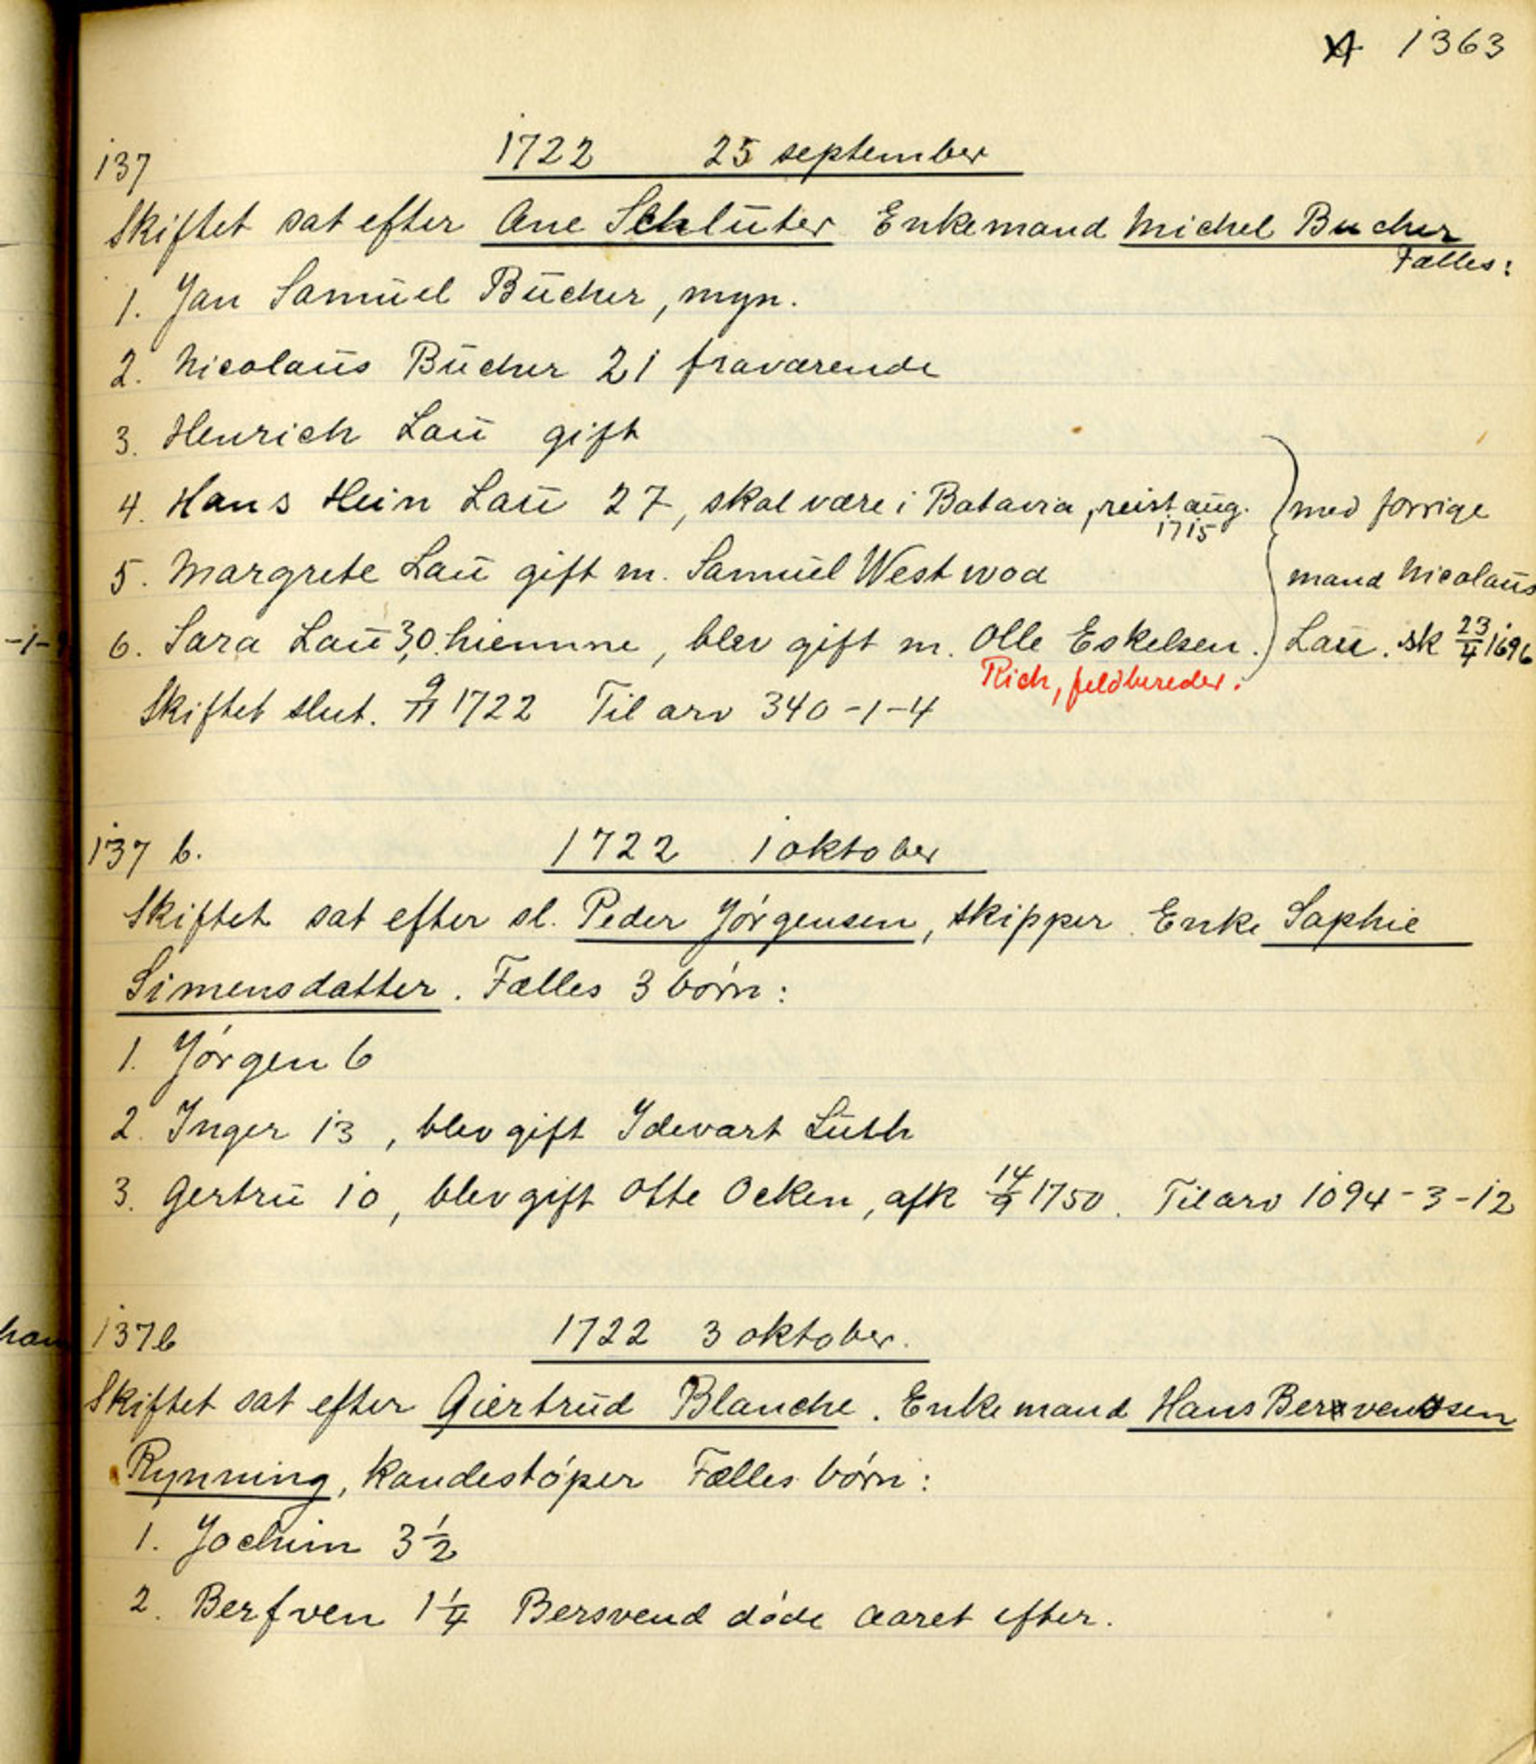 1363
137 1722 25 september
Skiftet sat efter Ane Schlüter Enkemand Michel Bucher
Fælles:
1. Jan Samüel Bücher, myn.
2. Nicolaüs Bücher 21 fraværende
3. Henrich Laü gift
4. Hans Hein Laü 27, skal være i Batavia, reist aug. med forrige
1715
5. Margrete Laü gift m. Samüel Westwod mand Nicolaüs
-1- 6. Sara Laü 30 hiemme, blev gift m. Olle Eskelsen. Laü. sk 23/4 1696
Rich, feldbereder.
Skiftet slut. 9/11 1722 Til arv 340-1-4
137 b. 1722 1 oktober
Skiftet sat efter sl. Peder Jórgensen, skipper. Enke Sophie
Simensdatter. Fælles 3 bórn:
1. Jórgen 6
2. Inger 13, blev gift Idevart Lüth
3. Gertrü 10, blev gift Otte Ocken, afk 14/9 1750. Til arv 1094-3-12
137b 1722 3 oktober.
Skiftet sat efter Giertrüd Blanche. Enkemand Hans Bersvendsen
Rynning, kandestóper Fælles bórn:
1. Jochim 3 1/2
2. Berfven 1 1/4 Bersvend dóde aaret efter.